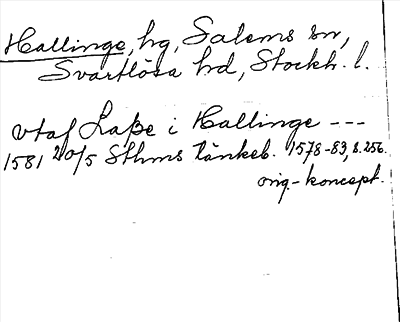 Hallinge, hg, Salems sn,
Svartlösa hd, Stockh. l.
vtaf Laße i Hallinge ---
1581 20/5 Sthms tänkeb. 1578-83, s. 256.
orig.-koncept.